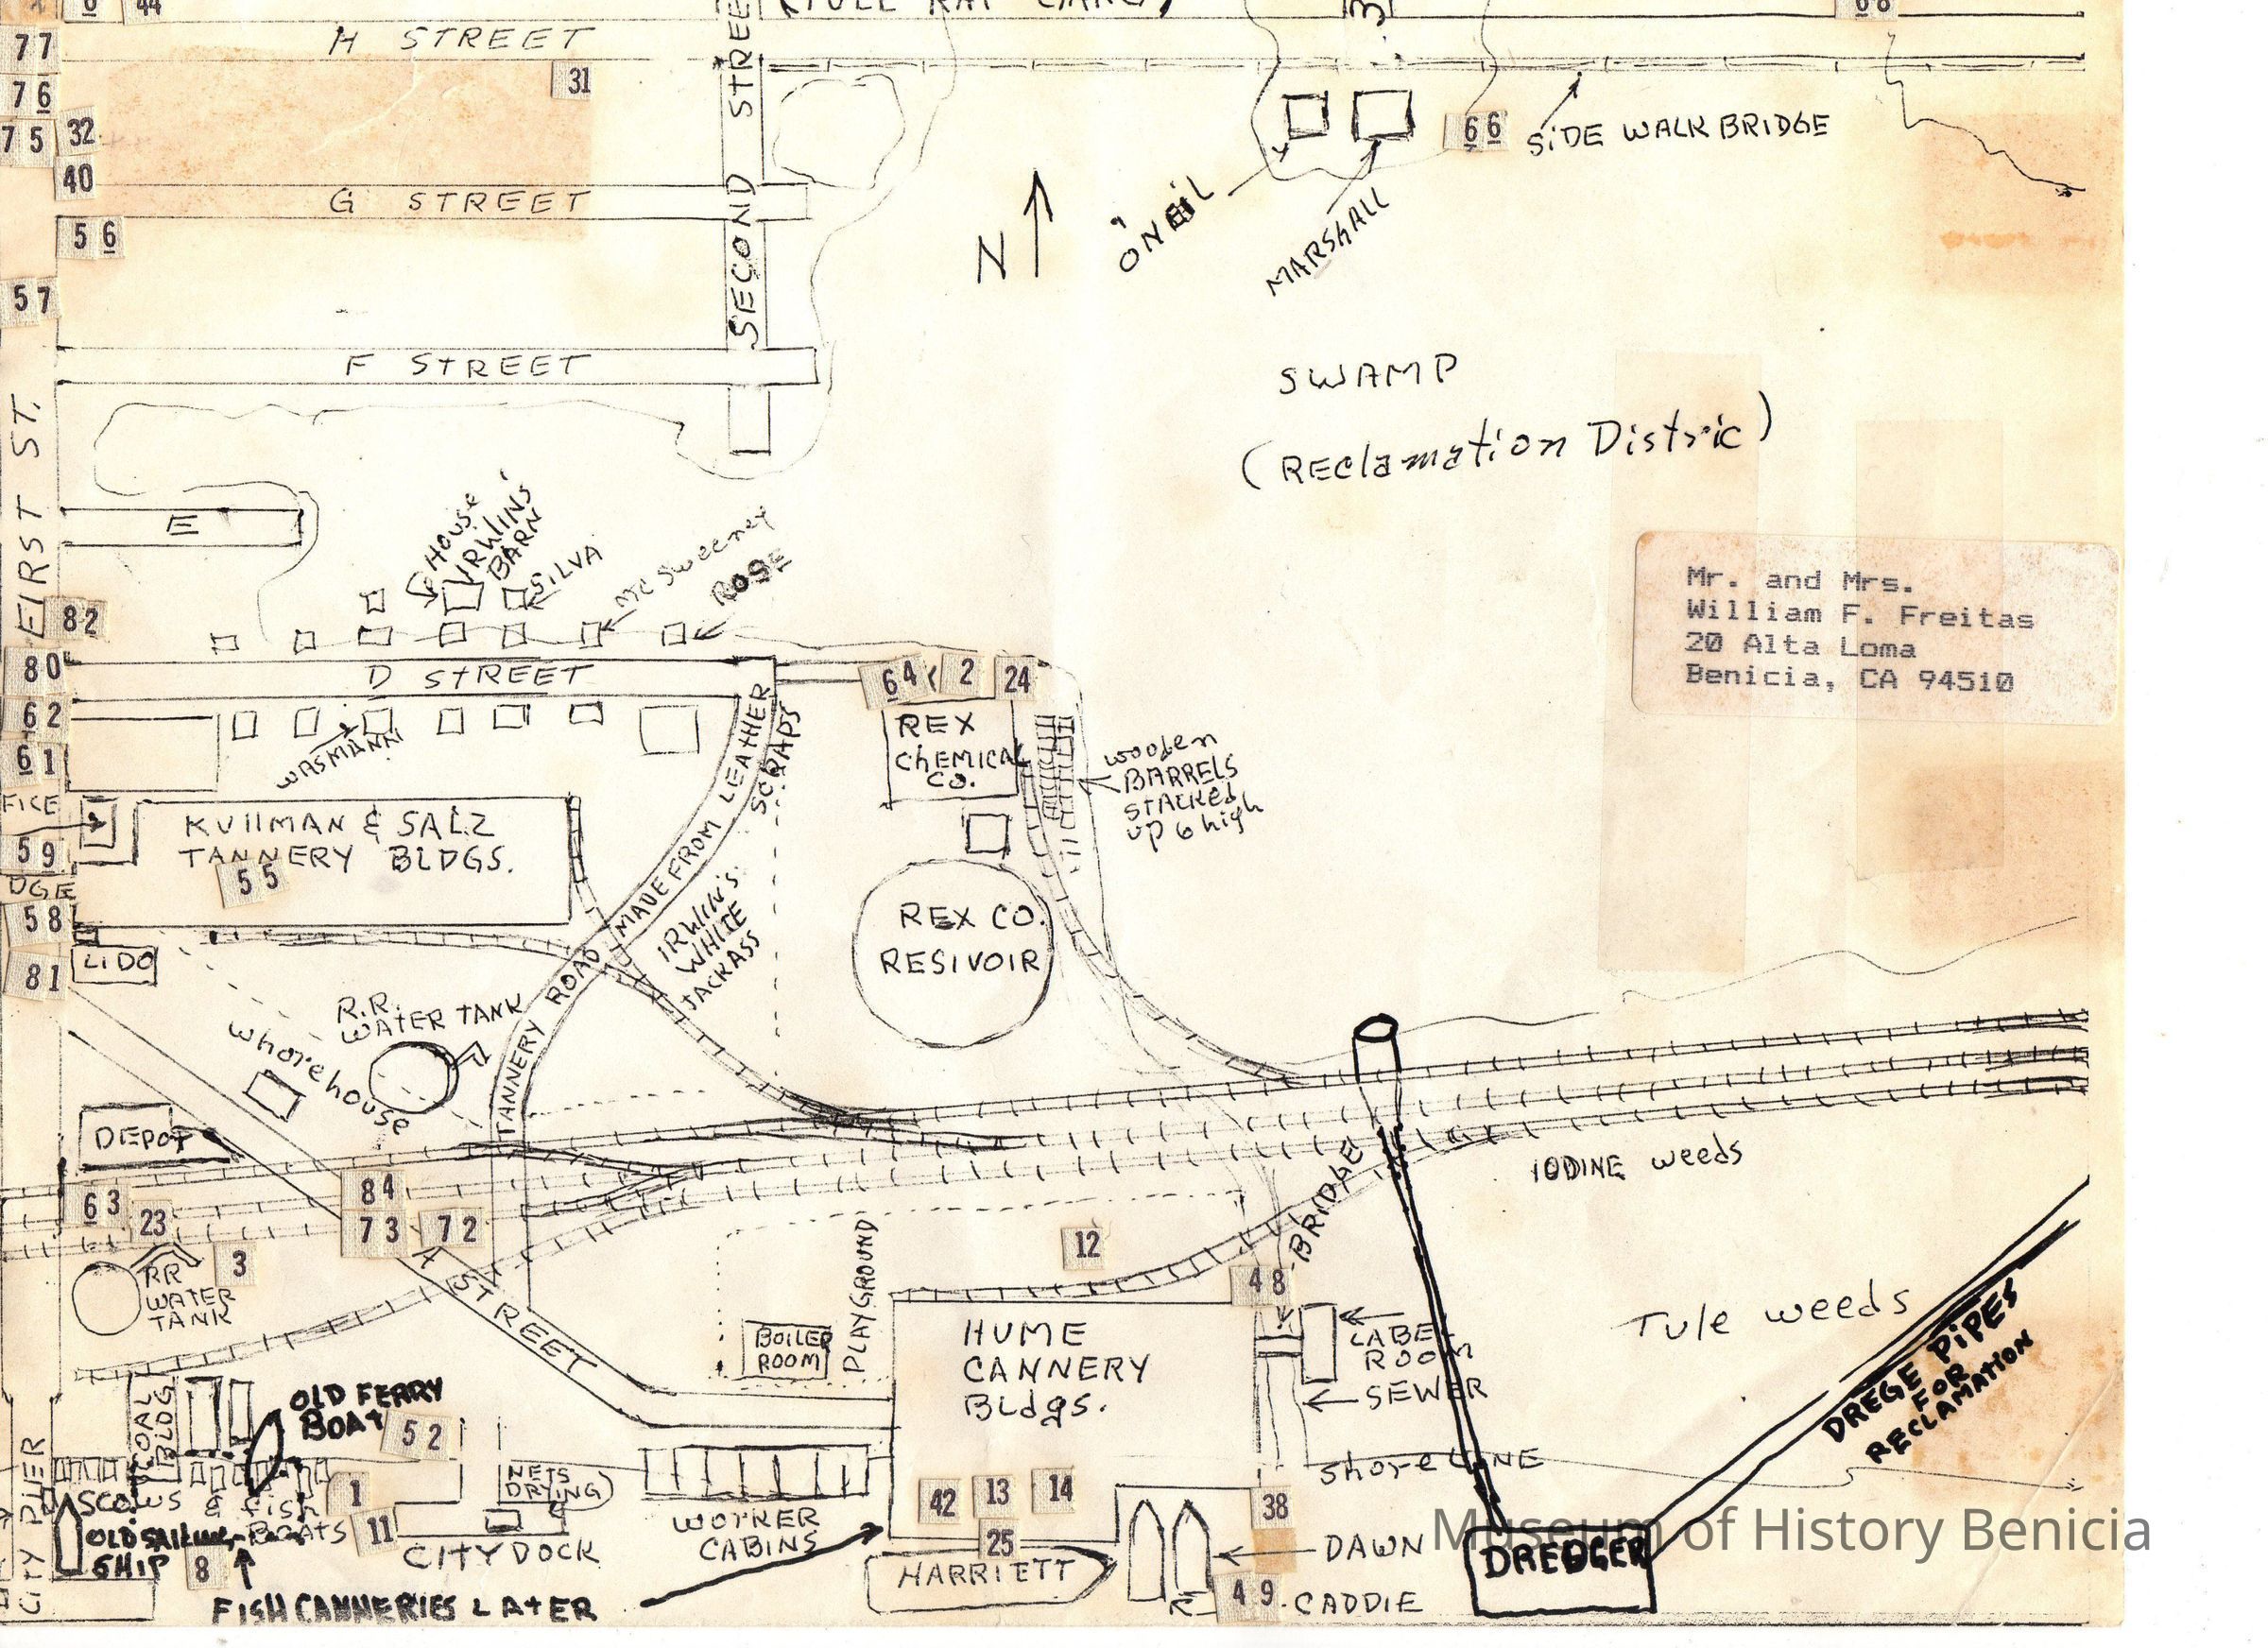 H STREET
44
77
76
75
32
31
40
G STREET
56
57
SECOND STREET
F STREET
FIRST ST.
E
N
O'NEIL
MARSHALL
66
SIDE WALK BRIDGE
SWAMP
(RECLamation Distric)
Mr. and Mrs.
William F. Freitas
20 Alta Loma
Benicia, CA 94510
HOUSE
IRWINS'
BARN
SILVA
Mc Sweeney
ROSE
82
80
D STREET
62
61
WASMANN
64
2
24
REX
CHEMICAL
CO.
wooden
BARRELS
STACKED
up 6 high
FICE
59
DGE
58
KUllMAN & SALZ
TANNERY BLDGS.
55
LIDO
81
TANNERY ROAD MADE FROM LEATHER
SCRAPS
IRWIN'S
WHITE
JACKASS
REX CO.
RESIVOIR
R.R.
WATER TANK
Whorehouse
DEPOT
63
23
3
84
73
72
RR
WATER
TANK
A STREET
BOILER
ROOM
PLAYGROUND
12
48
BRIDGE
IODINE weeds
HUME
CANNERY
BLdgs.
LABEL
ROOM
SEWER
Tule weeds
DREGE PIPES
FOR
RECLAMATION
Shore LINE
COAL
BLDG
OLD FERRY
BOAT
52
CITY PIER
SCOWS & Fish
BOATS
1
11
OLD SAILING
SHIP
8
NETS
DRYING
CITY DOCK
WORKER
CABINS
FISH CANNERIES LATER
42
13
14
25
38
HARRIETT
DAWN
49
CADDIE
DREDGER
Museum of History Benicia